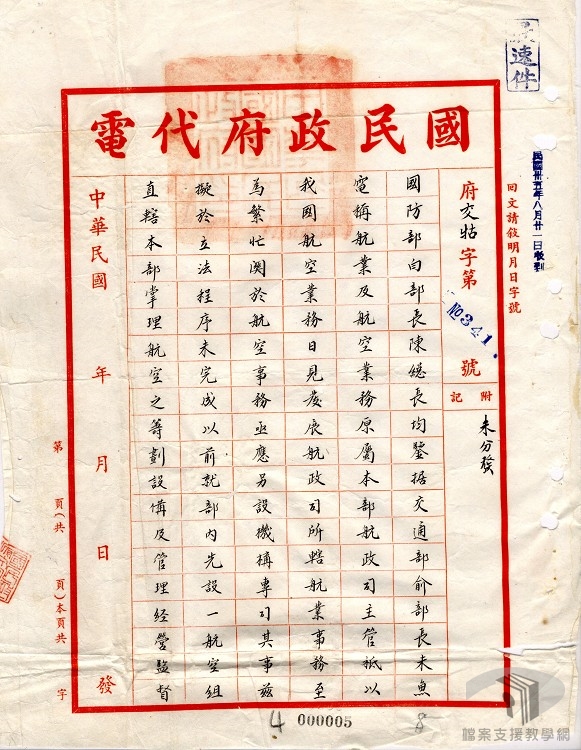 速件
國民政府代電
民國卅五年八月廿一日收到
回文請敘明月日字號
府交牯字第 號
№341.
附記
未分發
國防部白部長陳總長均鑒據交通部俞部長未魚
電稱航業及航空業務原屬本部航政司主管祇以
我國航空業務日見發展航政司所轄航業事務至
為繁忙関於航空事務亟應另設機構專司其事茲
擬於立法程序未完成以前就部內先設一航空組
直轄本部掌理航空之籌劃設備及管理經營監督
中華民國 年 月 日 發
第 頁(共 頁)本頁共 字
4 000005 8
檔案支援教學網